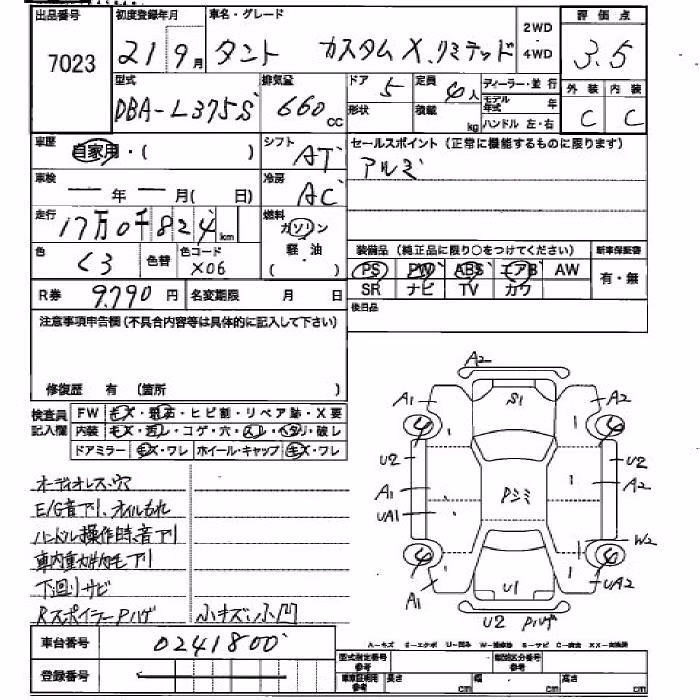 出品番号 初度登録年月 車名・グレード 2WD・4WD 評価点
7023 21 9月 タント カスタムX.リミテッド 3.5
型式 排気量 ドア 定員 ディーラー・並行 外装 内装
DBA-L375S 660cc 5 4人 モデル年式 年 C C
形状 積載 kg ハンドル 左・右
車歴 自家用・( ) シフト AT セールスポイント(正常に機能するものに限ります)
アルミ
車検 ー年ー月( 日) 冷房 AC
走行 17万0千824km 燃料 ガソリン
軽油
( )
色 クロ 色替 色コード X06 装備品(純正品に限り○をつけてください) 新車保証書
PS PW ABS エアB AW 有・無
R券 9.790円 名変期限 月 日 SR ナビ TV カワ
注意事項申告欄(不具合内容等は具体的に記入して下さい) 後日品
修復歴 有 (箇所 )
検査員記入欄 FW キズ・飛石・ヒビ割・リペア跡・X要
内装 キズ・汚レ・コゲ・穴・スレ・ヘタリ・破レ
ドアミラー キズ・ワレ ホイール・キャップ キズ・ワレ
オーディオレス、穴
E/G音アリ、オイルもれ
ハンドル操作時、音アリ
下回りサビ
Rスポイラー Pハゲ 小キズ小凹
A2
A1 S1 A2
4 4
U2 U2
A1 Pシミ A2
UA1
W2
4 4
A1 U1 UA2
U2 Pハゲ
車台番号 0241800
A-キズ E-エクボ U-凹み W-補修跡 S-サビ C-腐食 XX-交換済
登録番号
型式指定番号 参考 類別区分番号 参考
車庫証明用 参考 長さ cm 幅 cm 高さ cm